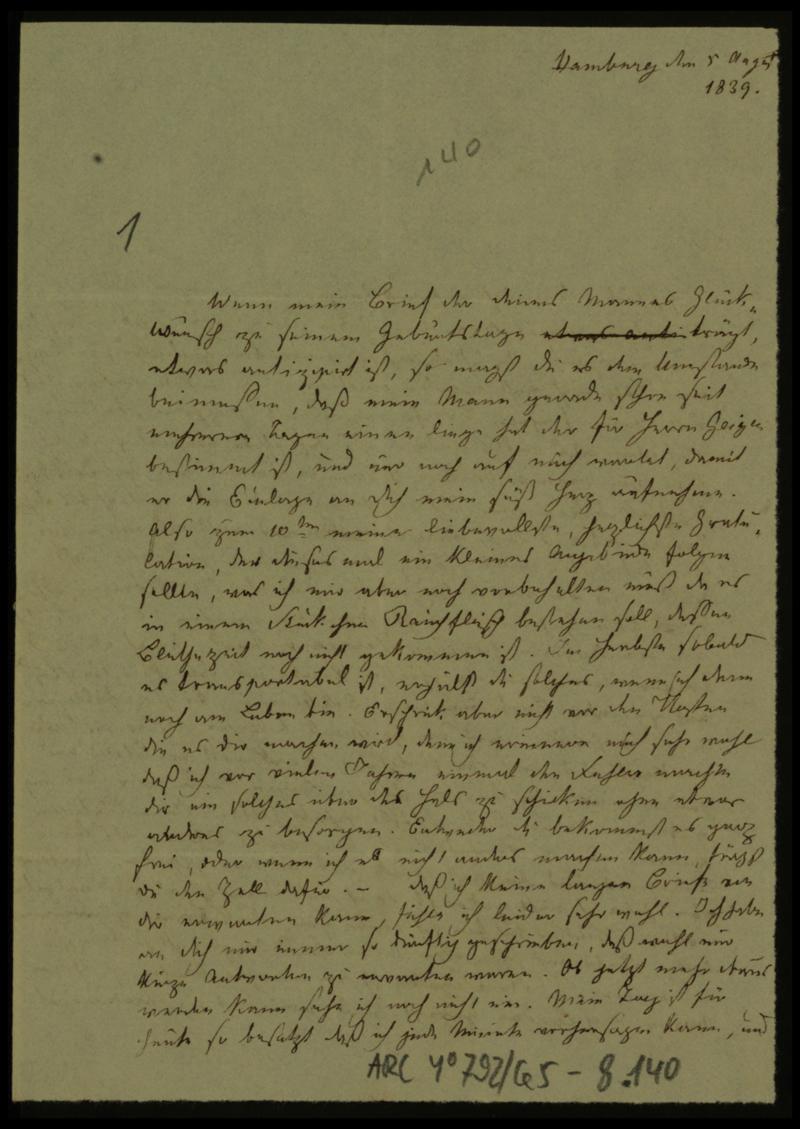 Hamburg den 5 August
1839.
140
1
Wenn mein Brief der deines Mannes Glück-
wunsch zu seinem Geburtstage etwas anti trägt,
etwas antizipirt ist, so magst du es dem Umstande
beimessen, daß mein Mann gerade schon seit
mehreren Tagen einen liegen hat der für Herrn
bestimmt ist, und nur noch auf mich wartet, damit
er die Einlage an dich mein süß Herz aufnehme.
Also zum 10ten meine liebevollste, herzlichste Gratu-
lation, der dieses mal ein kleines Angebinde folgen
sollte, was ich mir aber noch vorbehalten muß da es
in einem Stückchen Rauchfleisch bestehen soll, dessen
Blüthezeit noch nicht gekommen ist. Im Herbste sobald
es transportabel ist, erhälst du solches, wenn ich dann
noch am Leben bin. Erschrick aber nicht vor den Kosten
die es dir machen wird, denn ich erinnere mich sehr wohl
daß ich vor vielen Jahren einmal den Fehler machte
dir ein solches über den Hals zu schicken ohne etwas
anderes zu besorgen. Entweder du bekommst es ganz
frei, oder wenn ich es nicht anders machen kann, trägst
du den Zoll dafür. – Daß ich keine langen Briefe von
dir erwarten kann, fühle ich leider sehr wohl. Ich habe
an dich nur immer so dürftig geschrieben, daß wohl nur
kurze Antworten zu erwarten waren. Ob jetzt mehr daraus
werden kann sehe ich noch nicht ein. Mein Tag ist für
heute so besetzt daß ich jede Minute vorhersagen kann, und
ARC 4° 792/G5 - 8.140